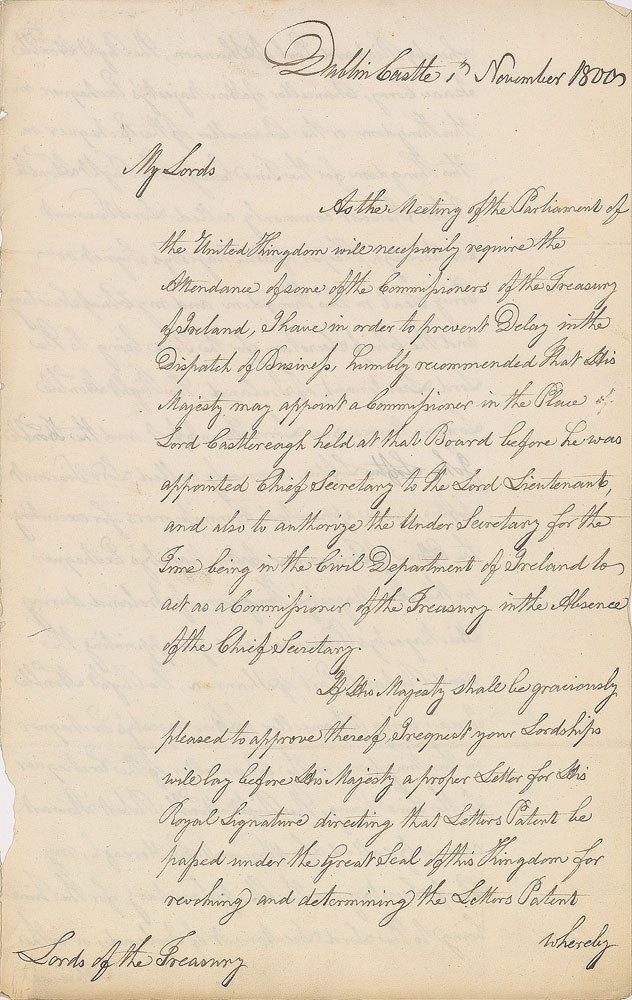 Dublin Castle 1st November 1800
My Lords
As the Meeting of the Parliament of
the United Kingdom will necessarily require the
Attendance of some of the Commissioners of the Treasury
of Ireland, I have in order to prevent Delay in the
Dispatch of Business, humbly recommended that His
Majesty may appoint a Commissioner in the Place of
Lord Castlereagh held at that Board before he was
appointed Chief Secretary to the Lord Lieutenant,
and also to authorize the Under Secretary for the
Time being in the Civil Department of Ireland to
act as a Commissioner of the Treasury in the Absence
of the Chief Secretary.
If His Majesty shall be graciously
pleased to approve thereof, I request your Lordships
will lay before His Majesty a proper Letter for His
Royal Signature directing that Letters Patent be
passed under the Great Seal of this Kingdom for
revoking and determining the Letters Patent
whereby
Lords of the Treasury